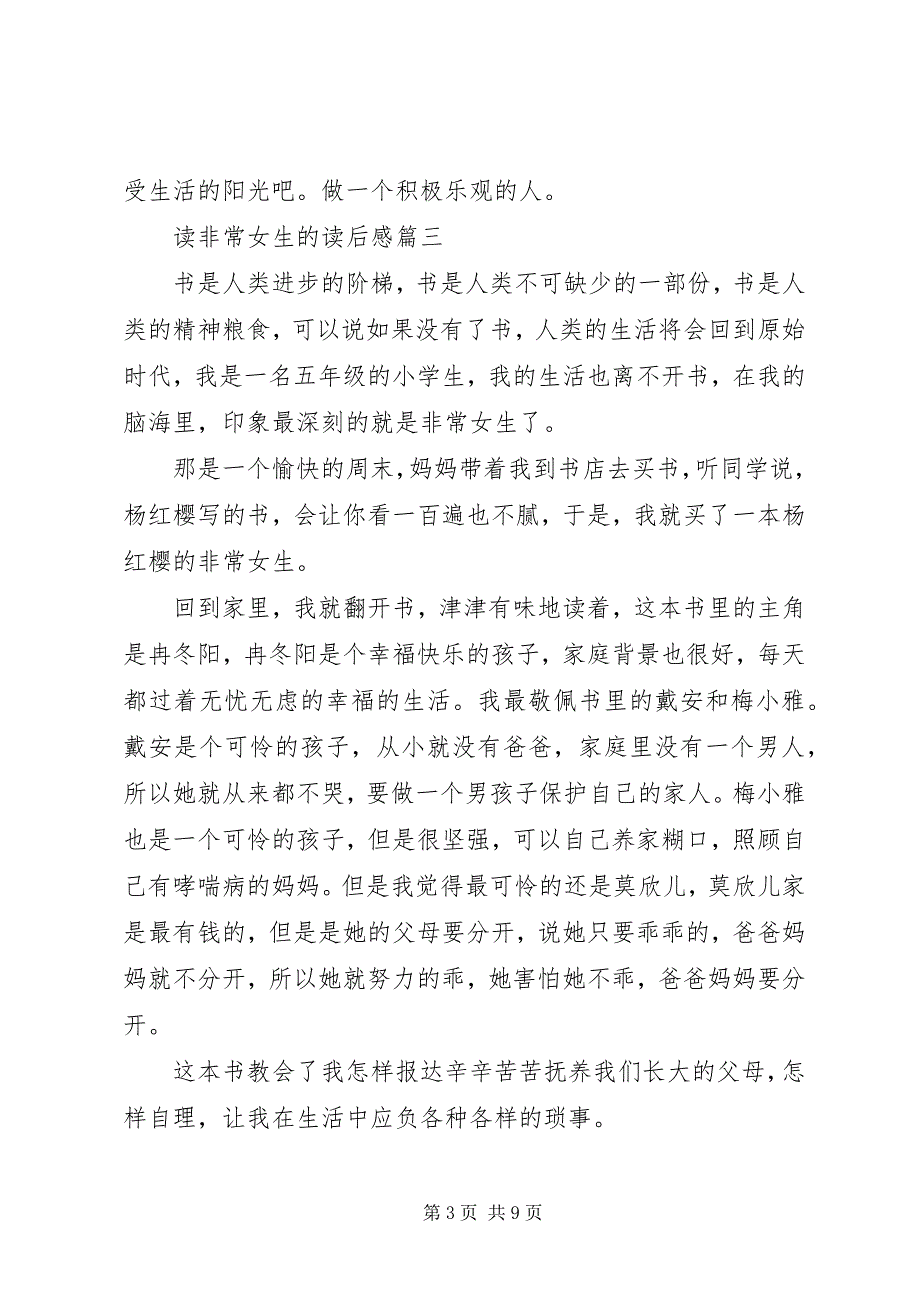 受生活的阳光吧。做一个积极乐观的人。
读非常女生的读后感篇三
书是人类进步的阶梯，书是人类不可缺少的一部份，书是人
类的精神粮食，可以说如果没有了书，人类的生活将会回到原始
时代，我是一名五年级的小学生，我的生活也离不开书，在我的
脑海里，印象最深刻的就是非常女生了。
那是一个愉快的周末，妈妈带着我到书店去买书，听同学说，
杨红樱写的书，会让你看一百遍也不腻，于是，我就买了一本杨
红樱的非常女生。
回到家里，我就翻开书，津津有味地读着，这本书里的主角
是冉冬阳，冉冬阳是个幸福快乐的孩子，家庭背景也很好，每天
都过着无忧无虑的幸福的生活。我最敬佩书里的戴安和梅小雅。
戴安是个可怜的孩子，从小就没有爸爸，家庭里没有一个男人，
所以她就从来都不哭，要做一个男孩子保护自己的家人。梅小雅
也是一个可怜的孩子，但是很坚强，可以自己养家糊口，照顾自
己有哮喘病的妈妈。但是我觉得最可怜的还是莫欣儿，莫欣儿家
是最有钱的，但是是她的父母要分开，说她只要乖乖的，爸爸妈
妈就不分开，所以她就努力的乖，她害怕她不乖，爸爸妈妈要分
开。
这本书教会了我怎样报达辛辛苦苦抚养我们长大的父母，怎
样自理，让我在生活中应负各种各样的琐事。
第 3 页 共 9 页